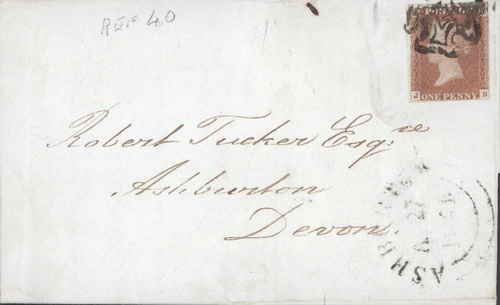 REF 40
ONE PENNY
J B
Robert Tucker Esqre
Ashburton
Devon.
27